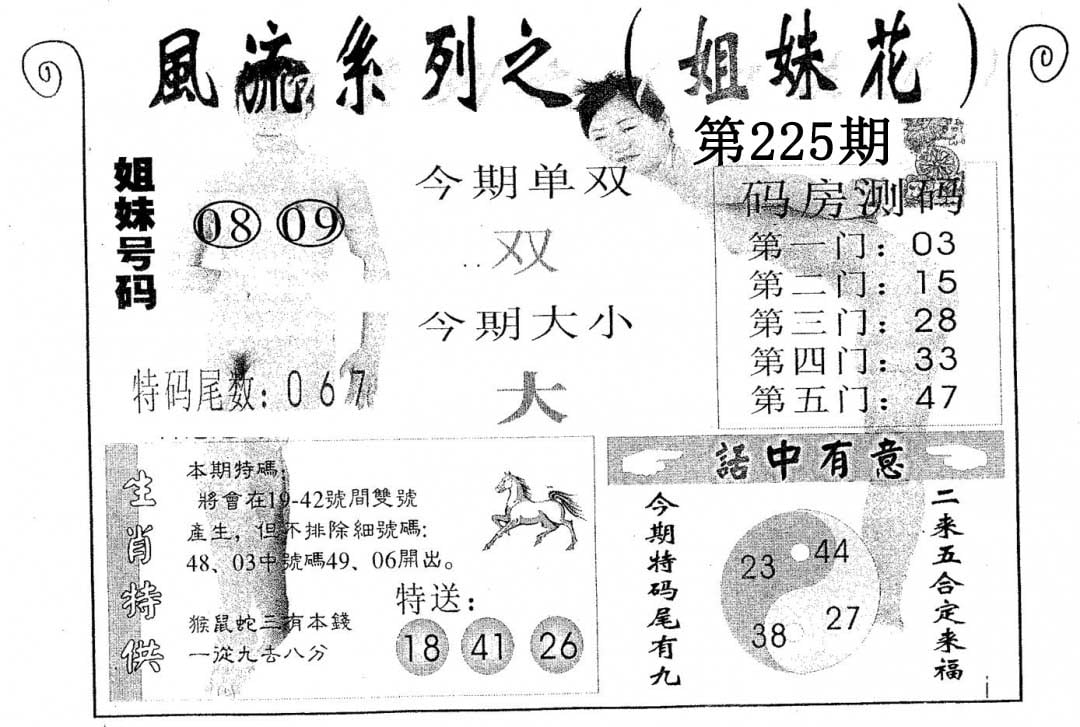 風流系列之（姐妹花）
第225期
姐妹号码
08 09
特码尾数：067
今期单双
双
今期大小
大
码房测码
第一门：03
第二门：15
第三门：28
第四门：33
第五门：47
生肖特供
本期特碼：
將會在19-42號間雙號
產生，但不排除細號碼：
48、03中號碼49、06開出。
猴鼠蛇三有本錢
一從九去八分
特送：
18 41 26
話中有意
今期特码尾有九
23 44
38 27
二来五合定来福